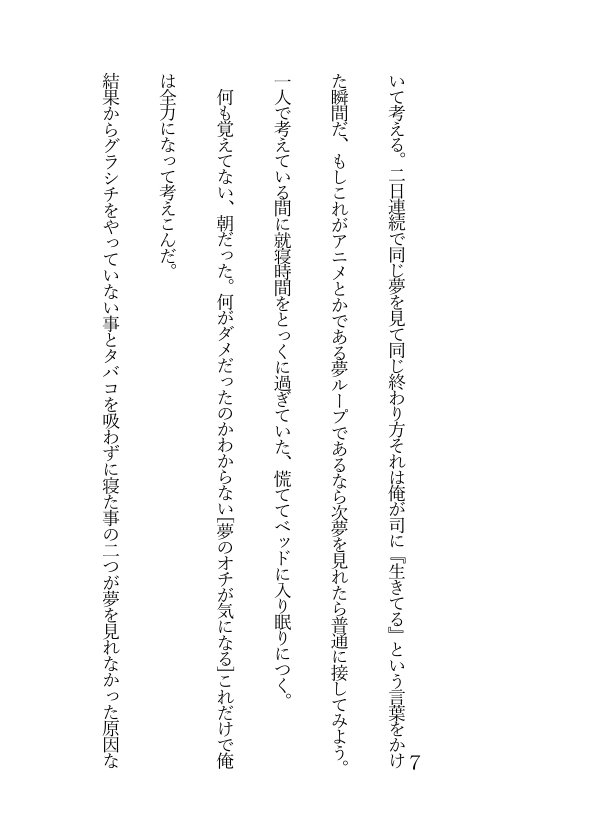 いて考える。二日連続で同じ夢を見て同じ終わり方それは俺が司に『生きてる』という言葉をかけ
た瞬間だ、もしこれがアニメとかである夢ループであるなら次夢を見れたら普通に接してみよう。
一人で考えている間に就寝時間をとっくに過ぎていた、慌ててベッドに入り眠りにつく。
何も覚えてない、朝だった。何がダメだったのかわからない[夢のオチが気になる]これだけで俺
は全力になって考えこんだ。
結果からグラシチをやっていない事とタバコを吸わずに寝た事の二つが夢を見れなかった原因な
7